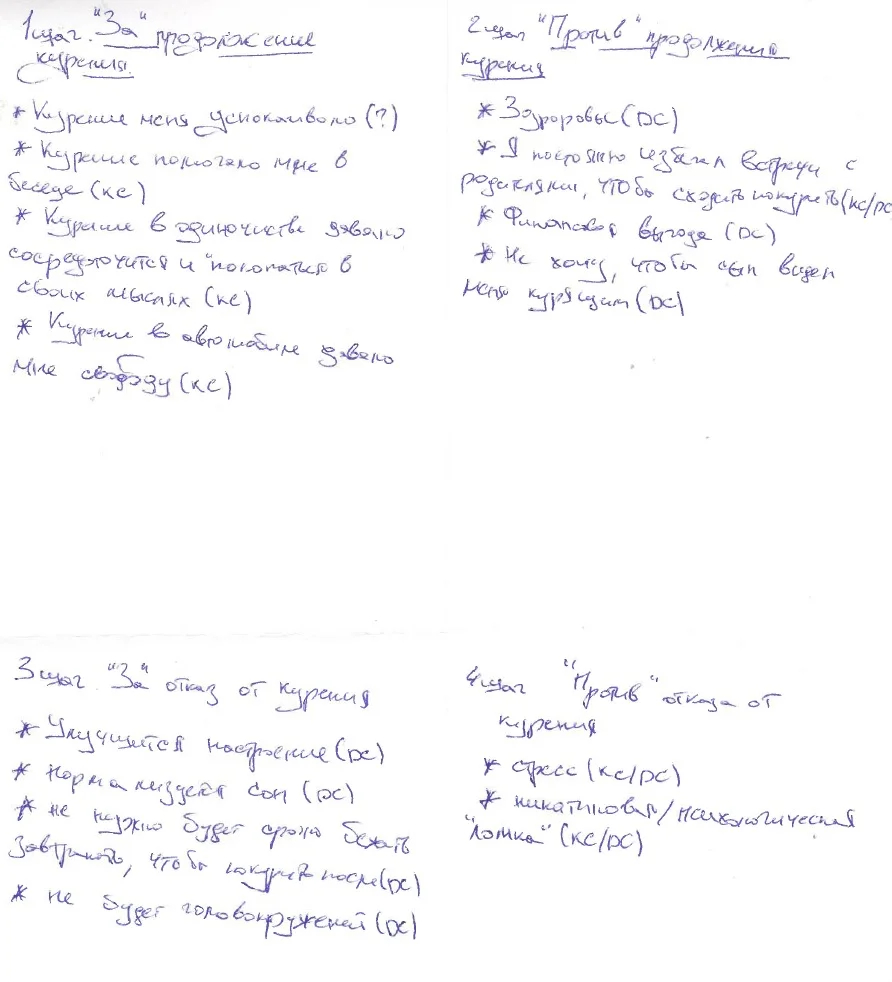 1 шаг. "За" продолжение
курения.
* Курение меня успокаивало (?)
* Курение помогало мне в
беседе (кс)
* Курение в одиночистве давало
сосредоточится и "покопаться в
своих мыслях (кс)
* Курение в автомобиле давало
мне свободу (кс)
2 шаг "Против" продолжения
курения
* Здоровье (DC)
* Я постоянно избегал встречи с
родителями, чтобы сходить покурить (кс/DC
* Финансовая выгода (DC)
* Не хочу, чтобы сын видел
меня курящим (DC)
3 шаг. "За" отказ от курения
* Улучшится настроение (DC)
* Нормализуется сон (DC)
* не нужно будет срочно бежать
завтракать, чтобы покурить после (DC)
* не будет головокружений (DC)
4 шаг "Против" отказа от
курения
* стресс (кс/DC)
* никатиновая/психологическая
"ломка" (кс/DC)